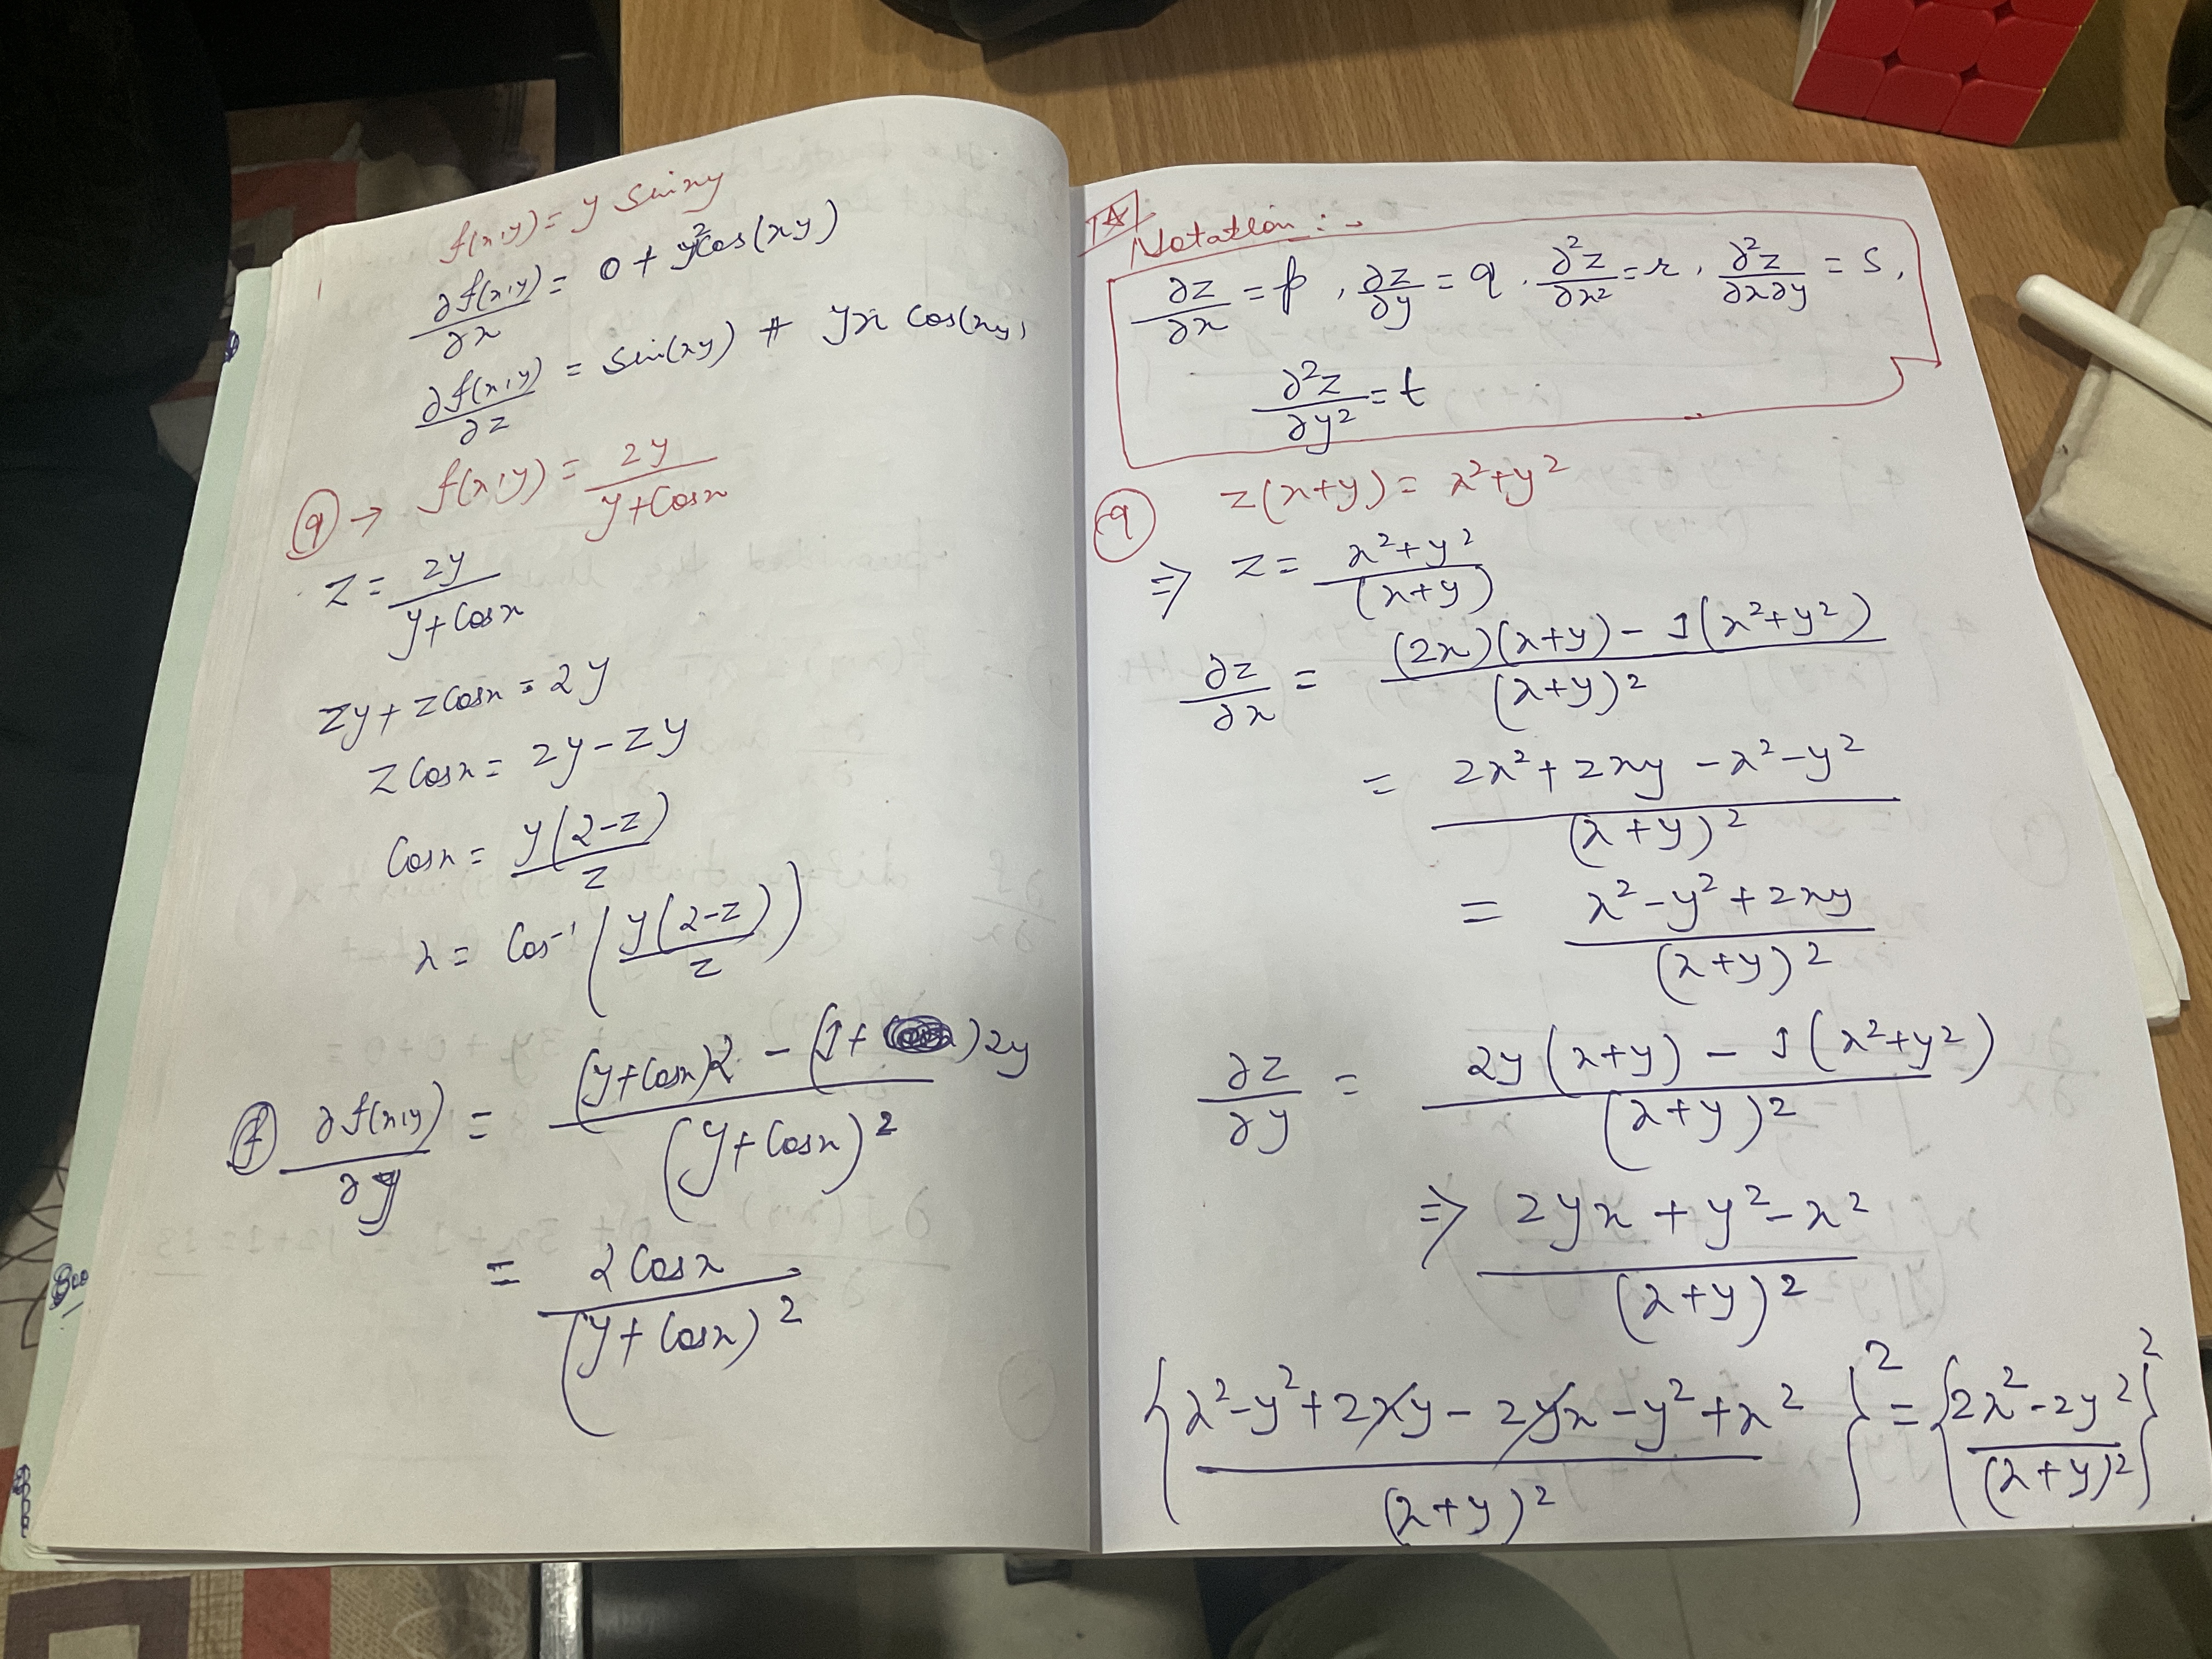 f(x,y) = y sinxy
∂f(x,y)/∂x = 0 + y²cos(xy)
∂f(x,y)/∂z = sin(xy) + yx cos(xy)
(q) → f(x,y) = 2y/(y+cosx)
z = 2y/(y+cosx)
zy + zcosx = 2y
z cosx = 2y - zy
cosx = y(2-z)/z
x = cos⁻¹(y(2-z)/z)
(f) ∂f(x,y)/∂y = ((y+cosx)2 - (1+ )2y)/(y+cosx)²
= 2cosx/(y+cosx)²
Notation :-
∂z/∂x = p, ∂z/∂y = q, ∂²z/∂x² = r, ∂²z/∂x∂y = s,
∂²z/∂y² = t
(q) z(x+y) = x²+y²
⇒ z = (x²+y²)/(x+y)
∂z/∂x = ((2x)(x+y) - 1(x²+y²))/(x+y)²
= (2x²+2xy-x²-y²)/(x+y)²
= (x²-y²+2xy)/(x+y)²
∂z/∂y = (2y(x+y) - 1(x²+y²))/(x+y)²
⇒ (2yx+y²-x²)/(x+y)²
{(x²-y²+2xy-2yx-y²+x²)/(x+y)²}² = {(2x²-2y²)/(x+y)²}²